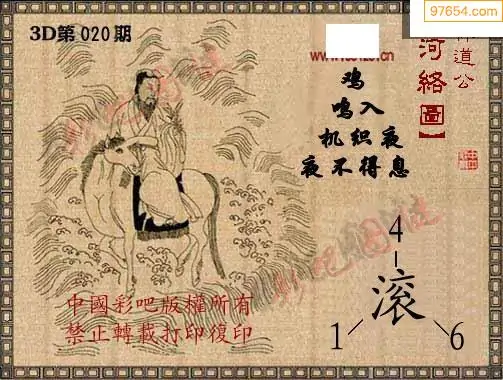 97654.com
3D第020期
道公
河络圖】
鸡
鸣入
机织夜
夜不得息
4
滚
1 6
中國彩吧版權所有
禁止轉載打印復印